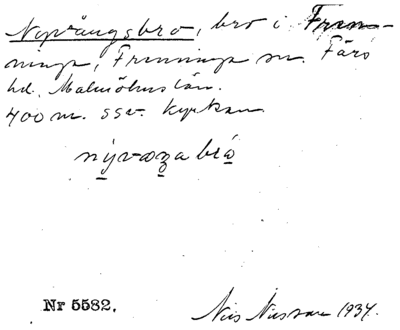 Nyvångsbro, bro i Fren-
ninge, Frenninge sn. Färs
hd. Malmöhus län.
400 m. ssv. kyrkan
Nr 5582.
Nils Nilsson 1934.